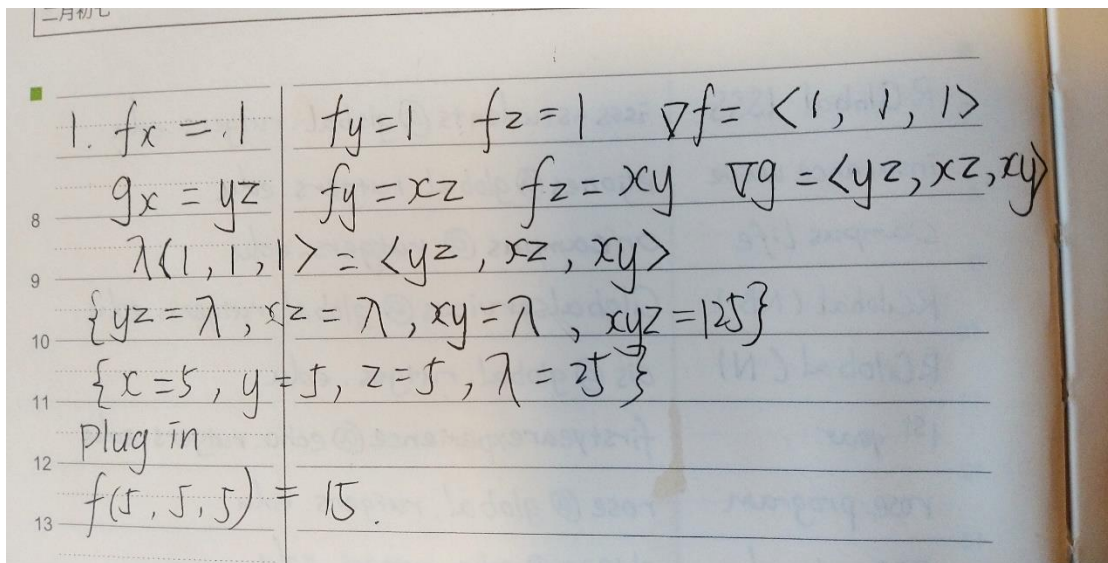 二月初七
1. fx = 1 fy = 1 fz = 1 ∇f = <1, 1, 1>
gx = yz fy = xz fz = xy ∇g = <yz, xz, xy>
8
λ<1, 1, 1> = <yz, xz, xy>
9
{yz = λ, xz = λ, xy = λ, xyz = 125}
10
{x = 5, y = 5, z = 5, λ = 25}
11
Plug in
12
f(5, 5, 5) = 15.
13